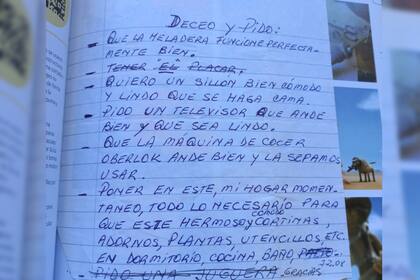 DECEO Y PIDO:
- QUE LA HELADERA FUNCIONE PERFECTA-
MENTE BIEN.
- TENER "EL" PLACAR,
- QUIERO UN SILLON BIEN CÓMODO
Y LINDO QUE SE HAGA CAMA.
- PIDO UN TELEVISOR QUE ANDE
BIEN Y QUE SEA LINDO.
- QUE LA MÁQUINA DE COCER
OBERLOK ANDE BIEN Y LA SEPAMOS
USAR.
- PONER EN ESTE, MI HOGAR MOMEN-
TANEO, TODO LO NECESARIO PARA
QUE ESTE HERMOSO Y CÓMODO CORTINAS,
ADORNOS, PLANTAS, UTENCILLOS, ETC.
EN DORMITORIO, COCINA, BAÑO, PATIO.
- PIDO UNA JUGUERA GRACIAS